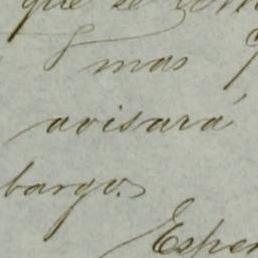 que se
mas
avisará
bargo.
Esper